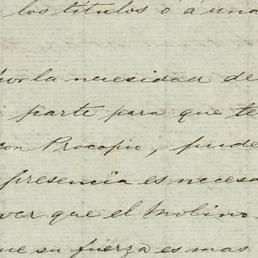 los títulos ó á una
por la necesidad de
parte para que te
con Procopio, pude
presencia es necesa
ver que el Molino
que su fuerza es mas